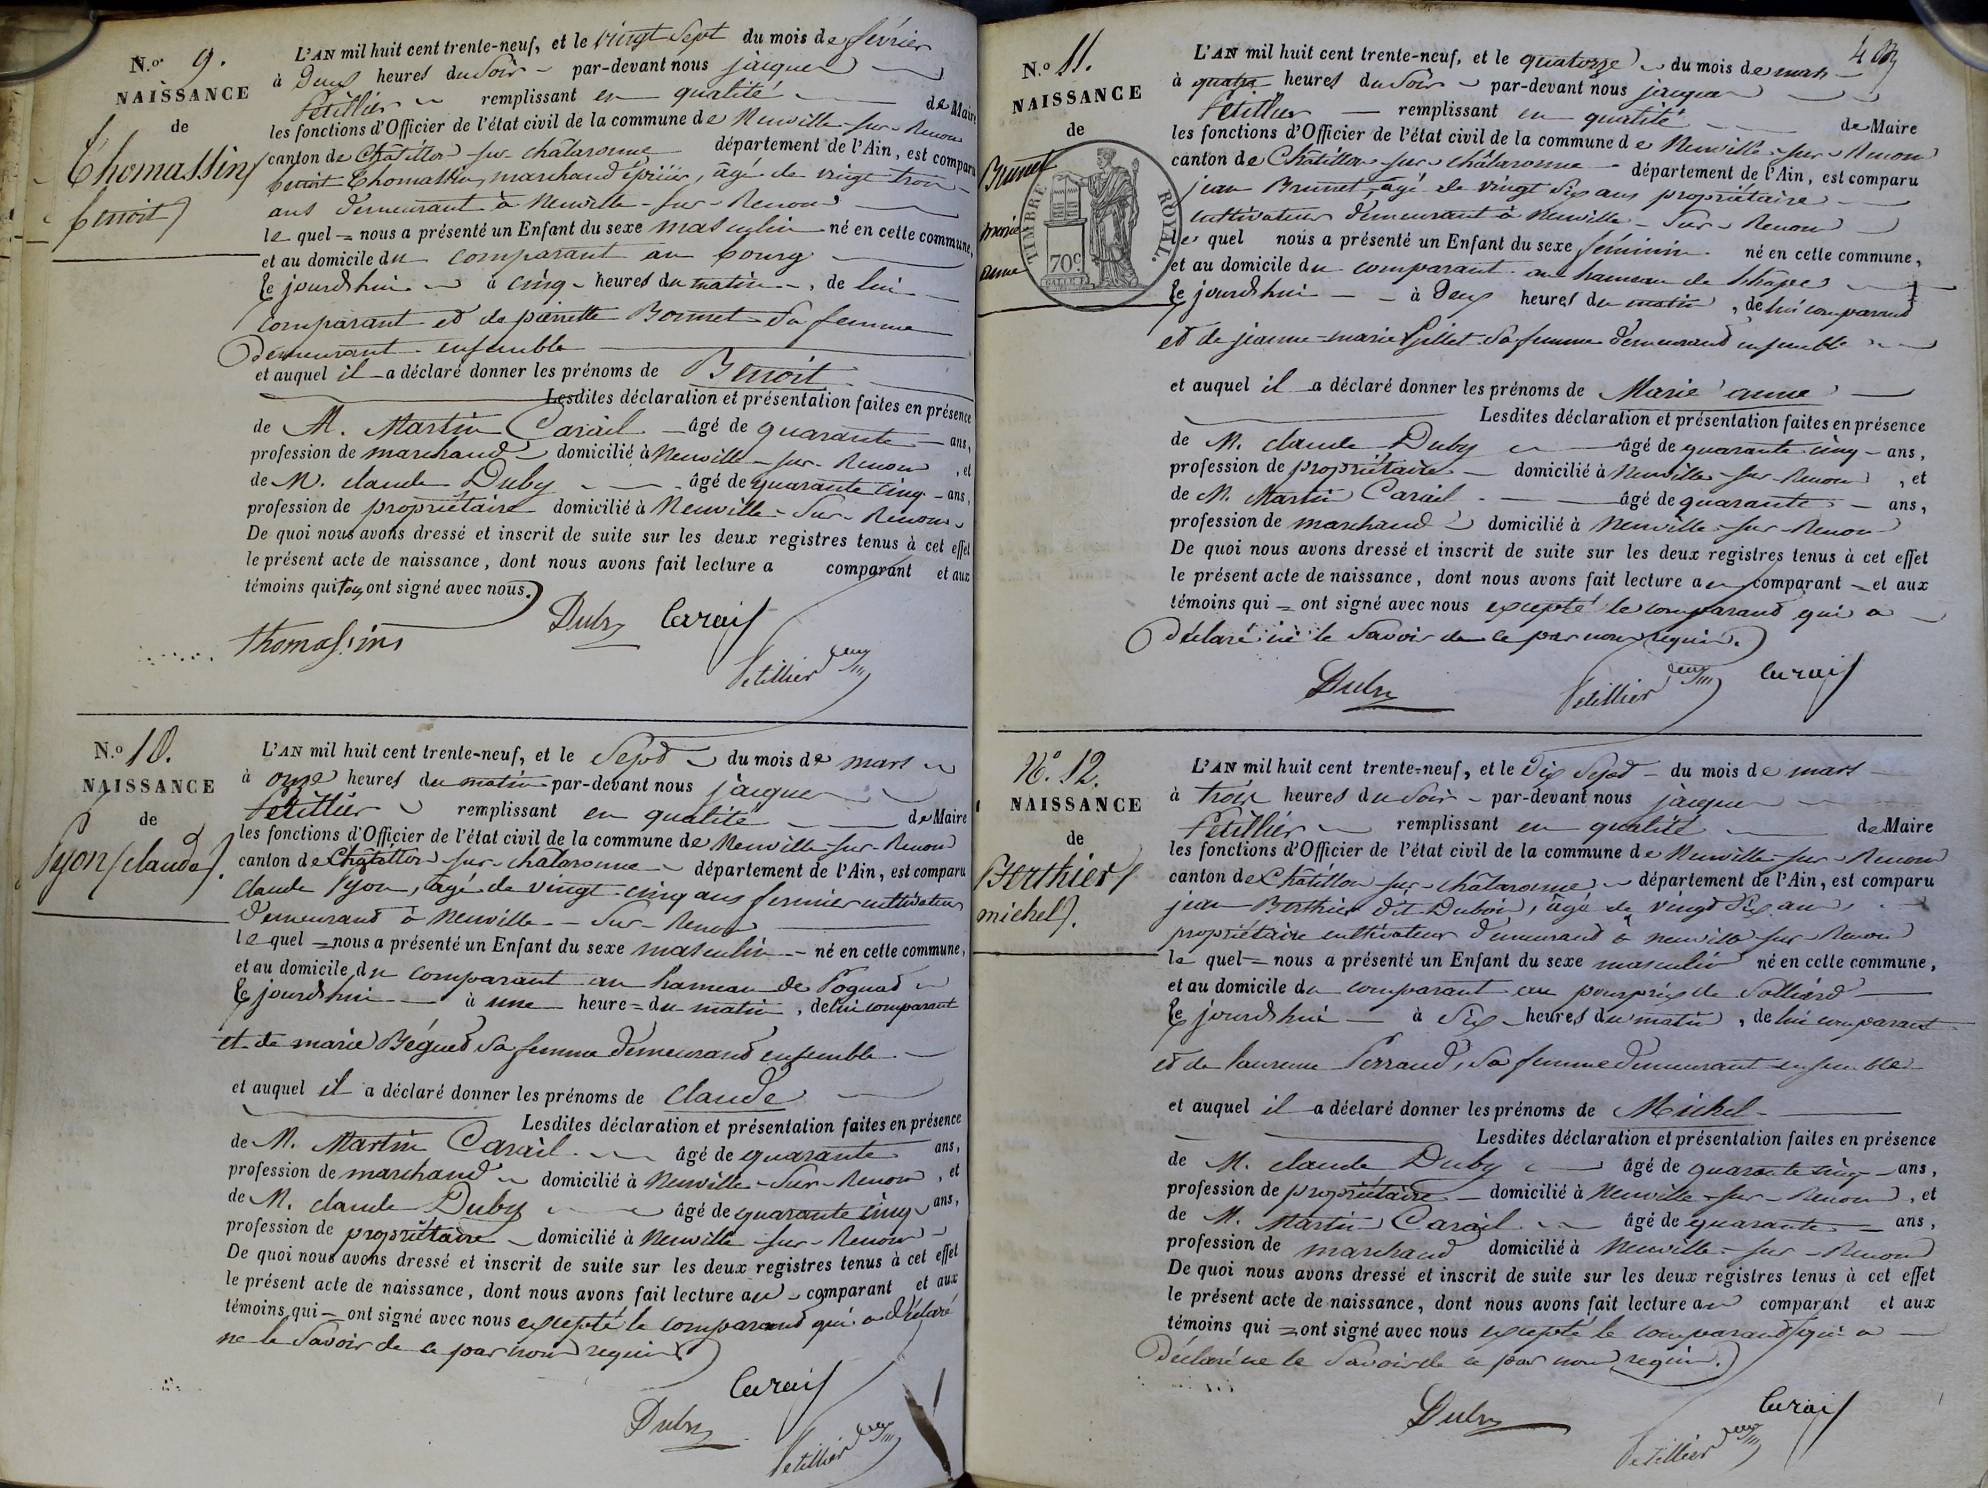 N.o 9.
NAISSANCE
de
Thomassin
(benoit)
L'AN mil huit cent trente-neuf, et le vingt Sept du mois de février
à Deux heures du Soir par-devant nous jacques
Petillier remplissant en qualité de Maire
les fonctions d'Officier de l'état civil de la commune de Neuville-sur-Renon
canton de Châtillon-sur-châlaronne département de l'Ain, est comparu
benoit Thomassin, marchand épicier, âgé de vingt trois
ans demeurant à Neuville-sur-Renon
le quel = nous a présenté un Enfant du sexe masculin né en cette commune,
et au domicile du comparant au bourg
ce jourd'hui à cinq heures du matin, de lui
comparant et de pierrette Bonnet sa femme
demeurant ensemble
et auquel il a déclaré donner les prénoms de Benoit
Lesdites déclaration et présentation faites en présence
de M. Martin Carail âgé de quarante ans,
profession de marchand domicilié à Neuville-sur-Renon, et
de M. claude Duby âgé de quarante cinq ans,
profession de propriétaire domicilié à Neuville-Sur-Renon
De quoi nous avons dressé et inscrit de suite sur les deux registres tenus à cet effet
le présent acte de naissance, dont nous avons fait lecture a comparant et aux
témoins qui tous ont signé avec nous.
thomassin Duby Carail
Petillier
N.o 10.
NAISSANCE
de
Pyon (claude).
L'AN mil huit cent trente-neuf, et le Sept du mois de mars
à onze heures du matin par-devant nous jacques
Petillier remplissant en qualité de Maire
les fonctions d'Officier de l'état civil de la commune de Neuville-sur-Renon
canton de Châtillon-sur-châlaronne département de l'Ain, est comparu
claude Pyon, âgé de vingt-cinq ans fermier cultivateur
demeurant à Neuville-Sur-Renon
le quel = nous a présenté un Enfant du sexe masculin né en cette commune,
et au domicile du comparant au hameau de Poguat
ce jourd'hui à une heure = du matin, de lui comparant
et de marie Béguet sa femme demeurant ensemble
et auquel il a déclaré donner les prénoms de claude
Lesdites déclaration et présentation faites en présence
de M. Martin Carail âgé de quarante ans,
profession de marchand domicilié à Neuville-Sur-Renon, et
de M. claude Duby âgé de quarante cinq ans,
profession de propriétaire domicilié à Neuville-sur-Renon
De quoi nous avons dressé et inscrit de suite sur les deux registres tenus à cet effet
le présent acte de naissance, dont nous avons fait lecture au comparant et aux
témoins qui = ont signé avec nous excepté le comparant qui a déclaré
ne le Savoir de ce par nous requis.
Carail
Duby
Petillier
N.o 11.
NAISSANCE
de
Brunet
marie
anne
TIMBRE ROYAL.
70c
L'AN mil huit cent trente-neuf, et le quatorze du mois de mars
à quatre heures du Soir par-devant nous jacques
Petillier remplissant en qualité de Maire
les fonctions d'Officier de l'état civil de la commune de Neuville-sur-Renon
canton de Châtillon-sur-châlaronne département de l'Ain, est comparu
jean Brunet, âgé de vingt Six ans propriétaire
cultivateur demeurant à Neuville-Sur-Renon
le quel nous a présenté un Enfant du sexe féminin né en cette commune,
et au domicile du comparant au hameau de
ce jourd'hui à Deux heures du matin, de lui comparant
et de jeanne-marie sa femme demeurant ensemble
et auquel il a déclaré donner les prénoms de Marie anne
Lesdites déclaration et présentation faites en présence
de M. claude Duby âgé de quarante cinq ans,
profession de propriétaire domicilié à Neuville-sur-Renon, et
de M. Martin Carail âgé de quarante ans,
profession de marchand domicilié à Neuville-sur-Renon
De quoi nous avons dressé et inscrit de suite sur les deux registres tenus à cet effet
le présent acte de naissance, dont nous avons fait lecture au comparant et aux
témoins qui = ont signé avec nous excepté le comparant qui a
déclaré ne le Savoir de ce par nous requis.
Duby Petillier Carail
N.o 12.
NAISSANCE
de
Berthier
(michel).
L'AN mil huit cent trente-neuf, et le Dix Sept du mois de mars
à trois heures du Soir par-devant nous jacques
Petillier remplissant en qualité de Maire
les fonctions d'Officier de l'état civil de la commune de Neuville-sur-Renon
canton de Châtillon-sur-châlaronne département de l'Ain, est comparu
jean Berthier dit Dubois, âgé de vingt Six ans,
propriétaire cultivateur demeurant à neuville sur Renon
le quel = nous a présenté un Enfant du sexe masculin né en cette commune,
et au domicile du comparant au pourpris de Solliard
ce jourd'hui à Six heures du matin, de lui comparant
et de laurence Perraud, sa femme demeurant ensemble
et auquel il a déclaré donner les prénoms de Michel
Lesdites déclaration et présentation faites en présence
de M. claude Duby âgé de quarante cinq ans,
profession de propriétaire domicilié à Neuville-sur-Renon, et
de M. Martin Carail âgé de quarante ans,
profession de marchand domicilié à Neuville-sur-Renon
De quoi nous avons dressé et inscrit de suite sur les deux registres tenus à cet effet
le présent acte de naissance, dont nous avons fait lecture au comparant et aux
témoins qui = ont signé avec nous excepté le comparant qui a
déclaré ne le Savoir de ce par nous requis.
Duby Carail
Petillier